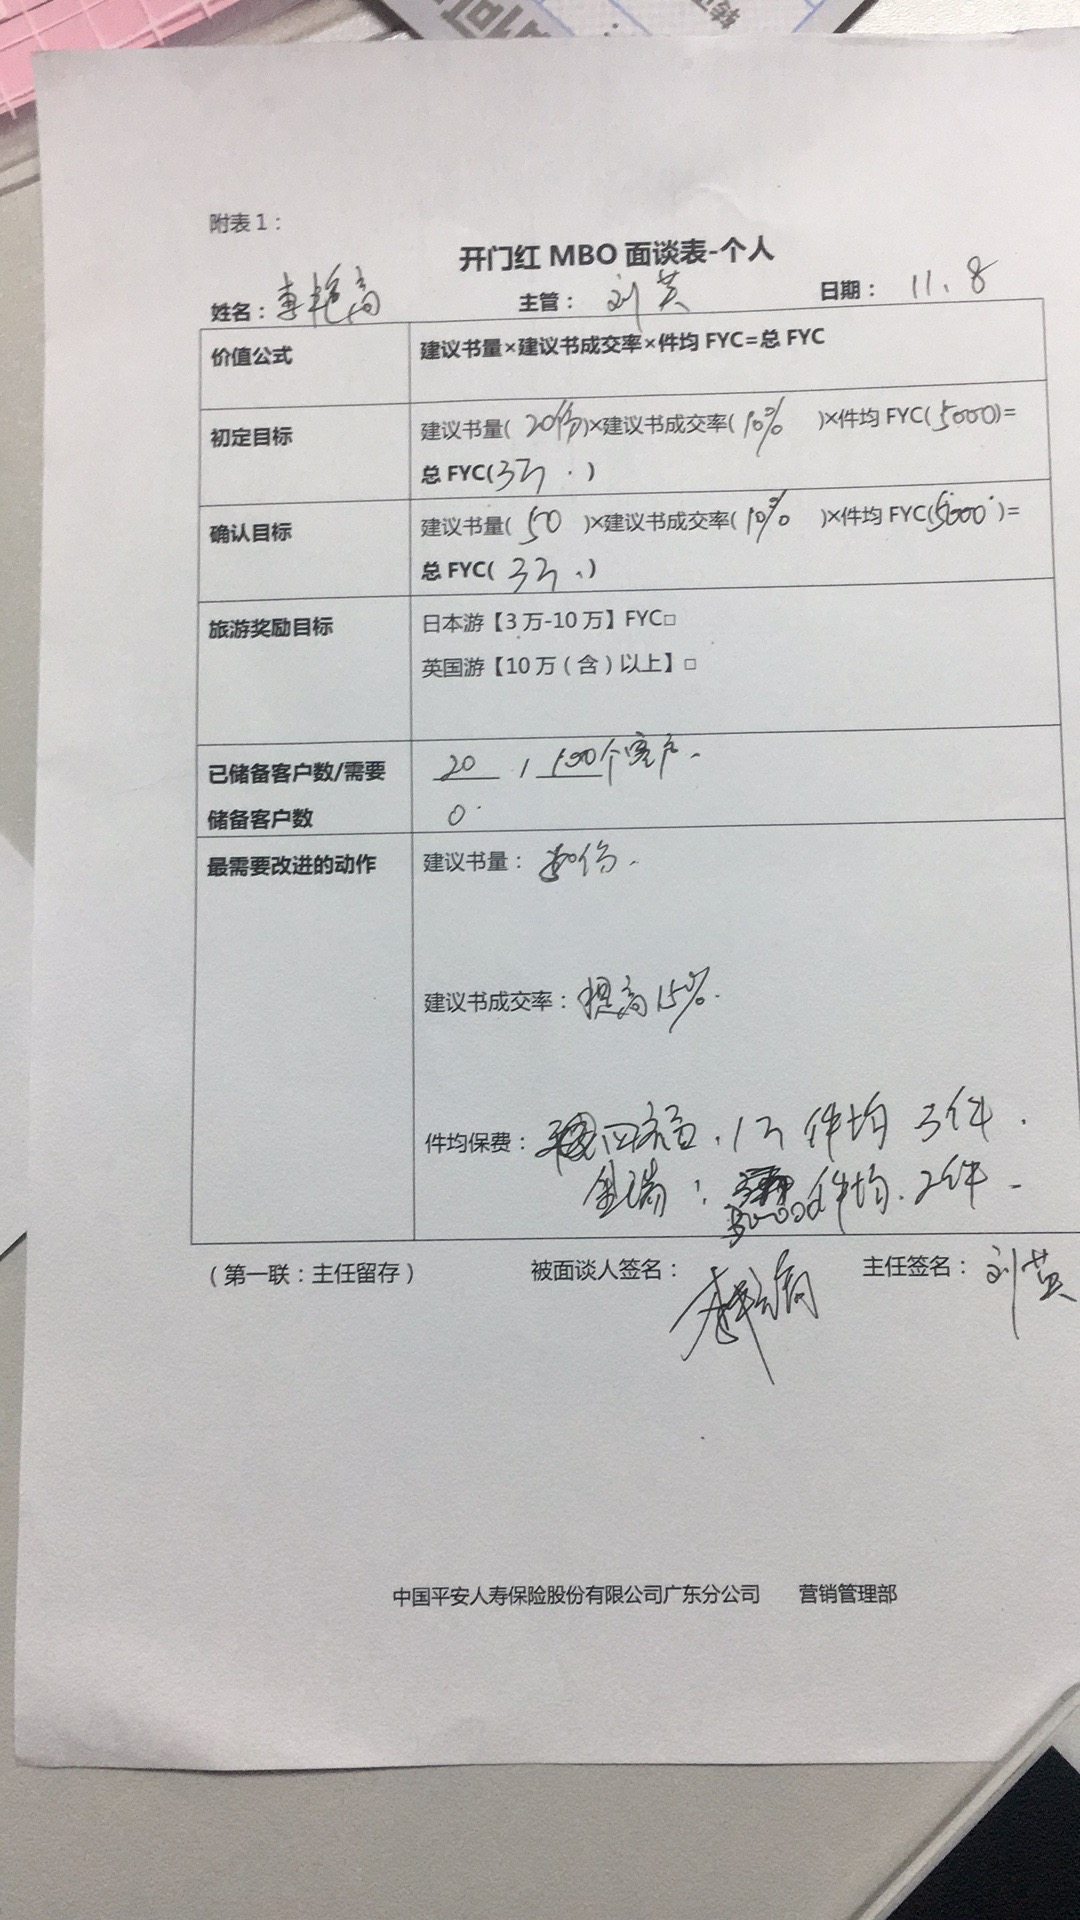 附表 1：
开门红 MBO 面谈表-个人
姓名： 主管：刘英 日期：11.8
价值公式 建议书量×建议书成交率×件均 FYC=总 FYC
初定目标 建议书量( 20份 )×建议书成交率( 10% )×件均 FYC( 5000 )=
总 FYC( 3万 . )
确认目标 建议书量( 50 )×建议书成交率( 10% )×件均 FYC( 5000 )=
总 FYC( 3万 . )
旅游奖励目标 日本游【3 万-10 万】FYC□
英国游【10 万（含）以上】□
已储备客户数/需要 20 / 100个客户.
储备客户数 0
最需要改进的动作 建议书量： 份.
建议书成交率：提高15%.
件均保费： .1万 件均 3件.
金瑞： 件均.2件
（第一联：主任留存） 被面谈人签名： 主任签名：刘英
中国平安人寿保险股份有限公司广东分公司 营销管理部